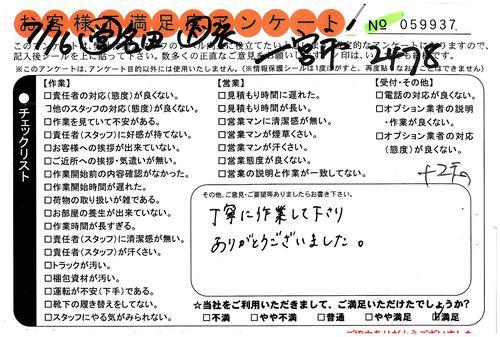 お客様不満足度アンケート！
No 059937
7/16
2478
記入後シールを上に貼って下さい。
※このアンケートは、アンケート目的以外には使用いたしません。
●チェックリスト
【作業】
□責任者の対応(態度)が良くない。
□他のスタッフの対応(態度)が良くない。
□作業を見ていて不安がある。
□責任者(スタッフ)に好感が持てない。
□お客様への挨拶が出来ていない。
□ご近所への挨拶・気遣いが無い。
□作業開始前の内容確認がなかった。
□作業開始時間が遅れた。
□荷物の取り扱いが雑である。
□お部屋の養生が出来ていない。
□作業時間が長すぎる。
□責任者(スタッフ)に清潔感が無い。
□責任者(スタッフ)が汗くさい。
□トラックが汚い。
□梱包資材が汚い。
□運転が不安(下手)である。
□靴下の履き替えをしてない。
□スタッフにやる気がみられない。
【営業】
□見積もり時間に遅れた。
□見積もり時間が長い。
□営業マンに清潔感が無い。
□営業マンが煙草くさい。
□営業マンが汗くさい。
□営業態度が良くない。
□営業の説明と作業が一致してない。
【受付・その他】
□電話の対応が良くない。
□オプション業者の説明
・作業が良くない。
□オプション業者の対応
(態度)が良くない。
その他、ご意見・ご要望等ありましたらお書き下さい。
丁寧に作業して下さり
ありがとうございました。
☆当社をご利用いただきまして、ご満足いただけたでしょうか？
□不満 □やや不満 □普通 □やや満足 □満足